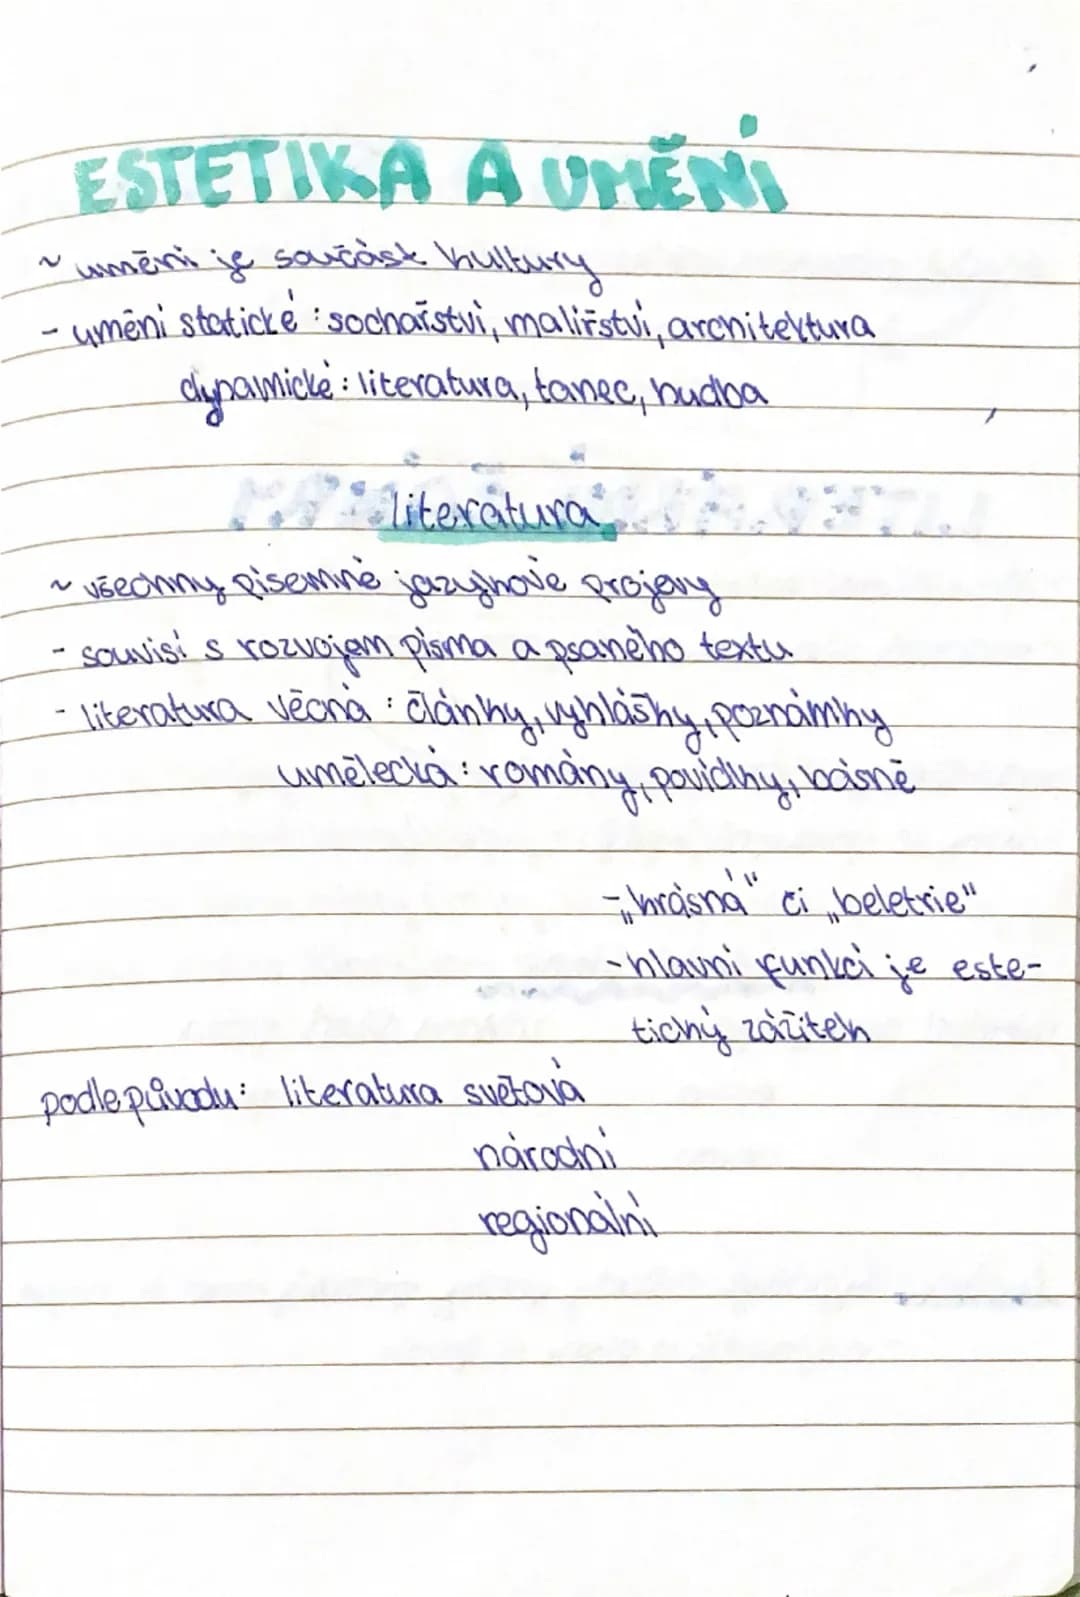 ESTETIKA A UMĚNÍ
~ umění je součást kultury
- umění statické : sochařství, malířství, architektura
dynamické : literatura, tanec, hudba
literatura
~ všechny písemné jazykové projevy
- souvisí s rozvojem písma a psaného textu
- literatura věcná : články, vyhlášky, poznámky
umělecká : romány, povídky, básně
- „krásná" či „beletrie"
- hlavní funkcí je este-
tický zážitek
podle původu : literatura světová
národní
regionální